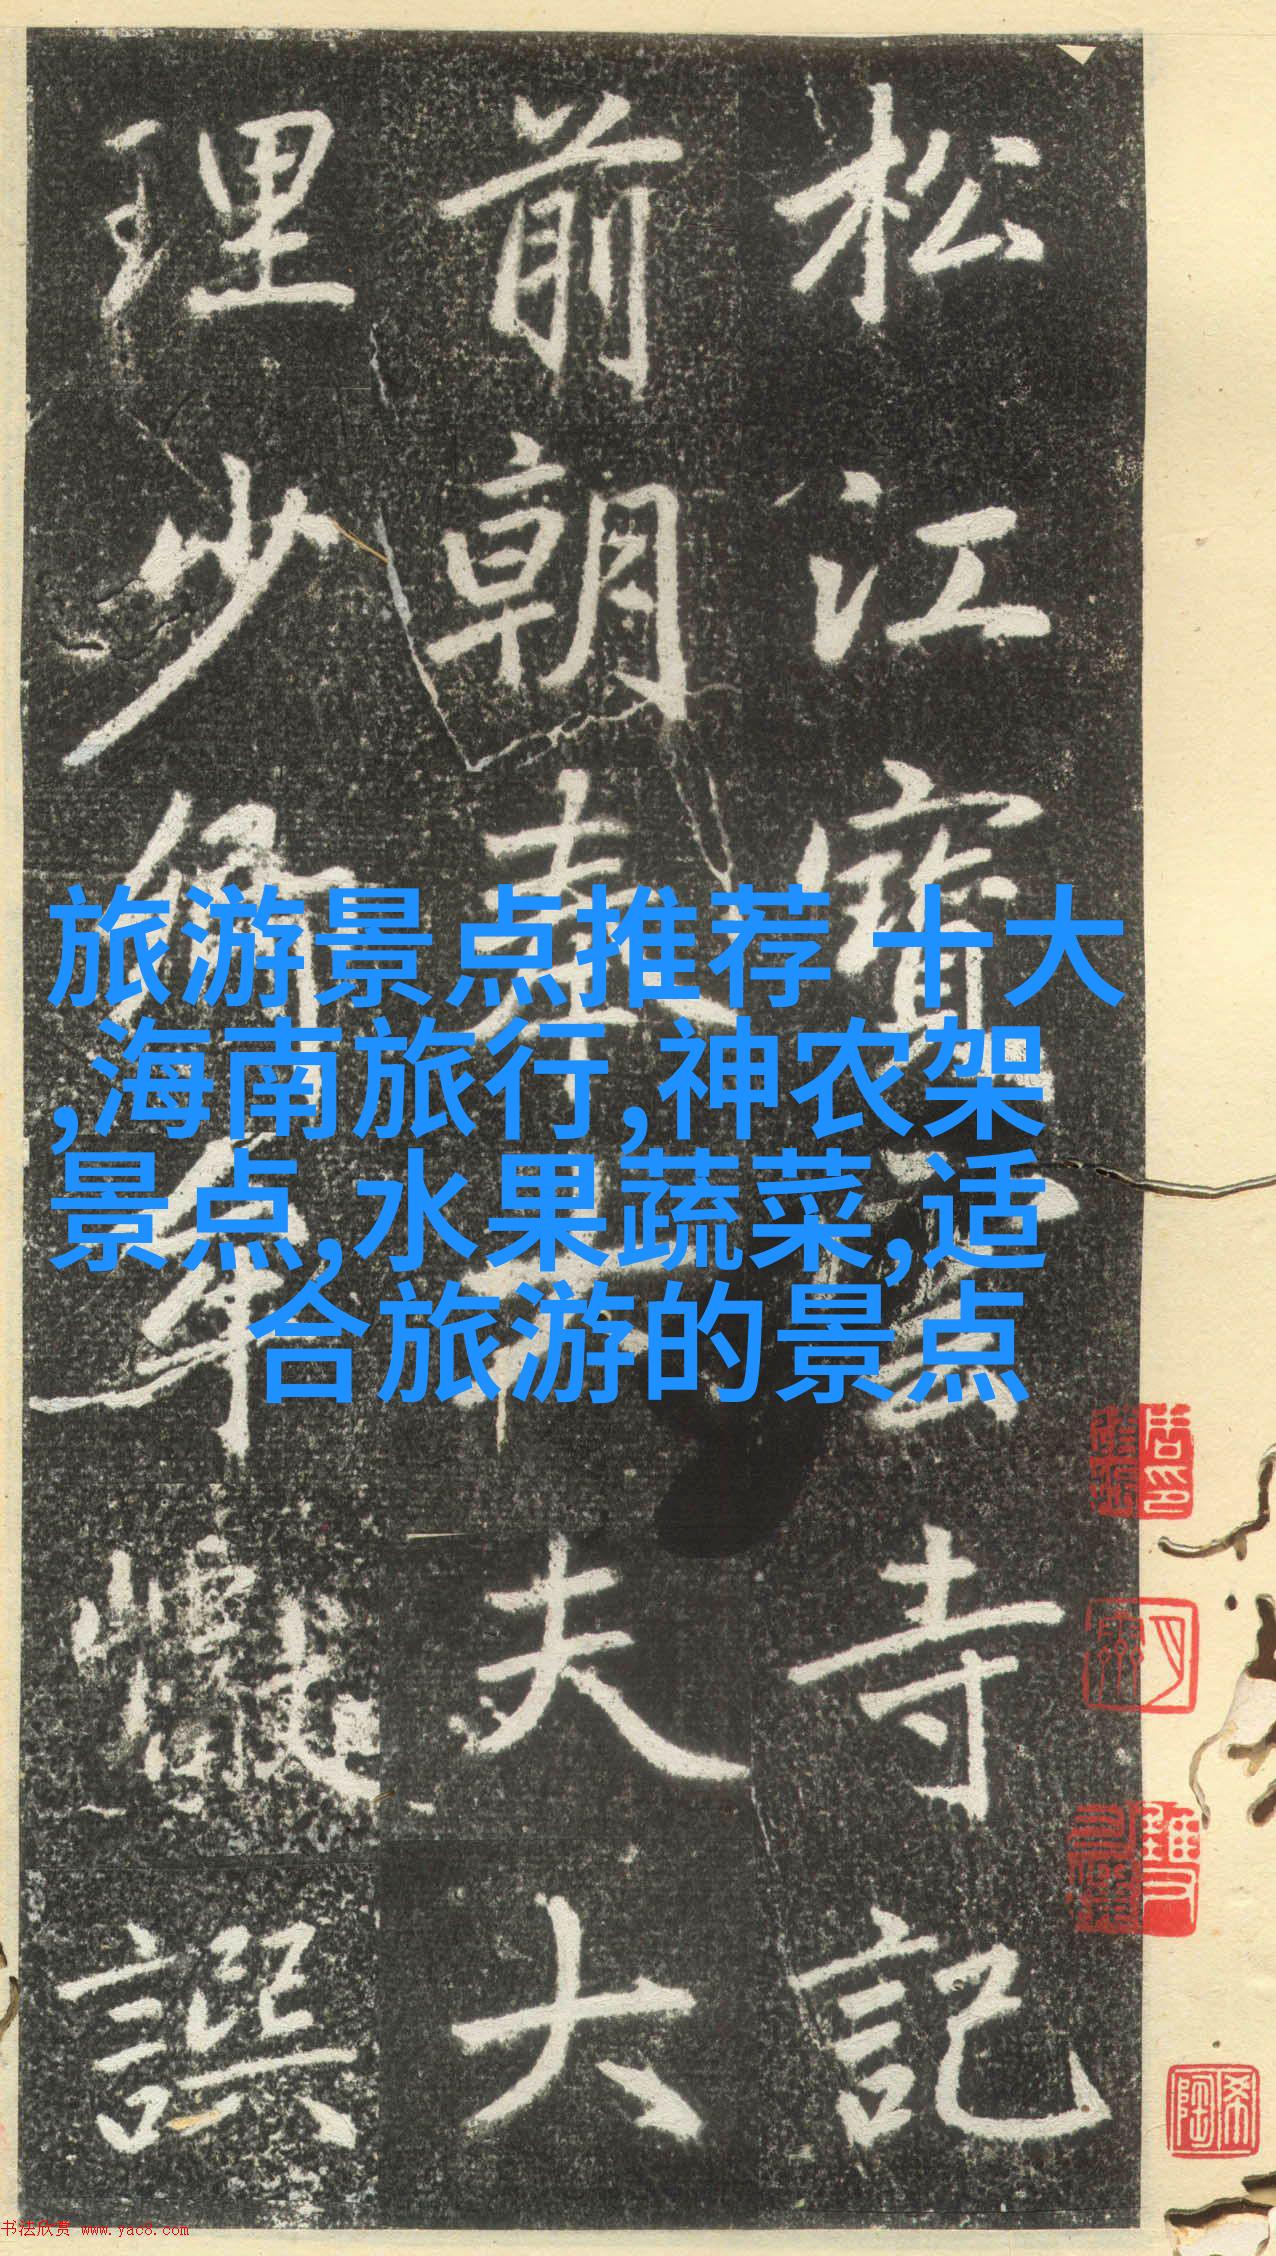 松江寶雲寺記
前朝奉大夫大
理少卿牟巘譔
旅游景点推荐 十大
,海南旅行,神农架
景点,水果蔬菜,适
合旅游的景点
书法欣赏 www.yac8.com